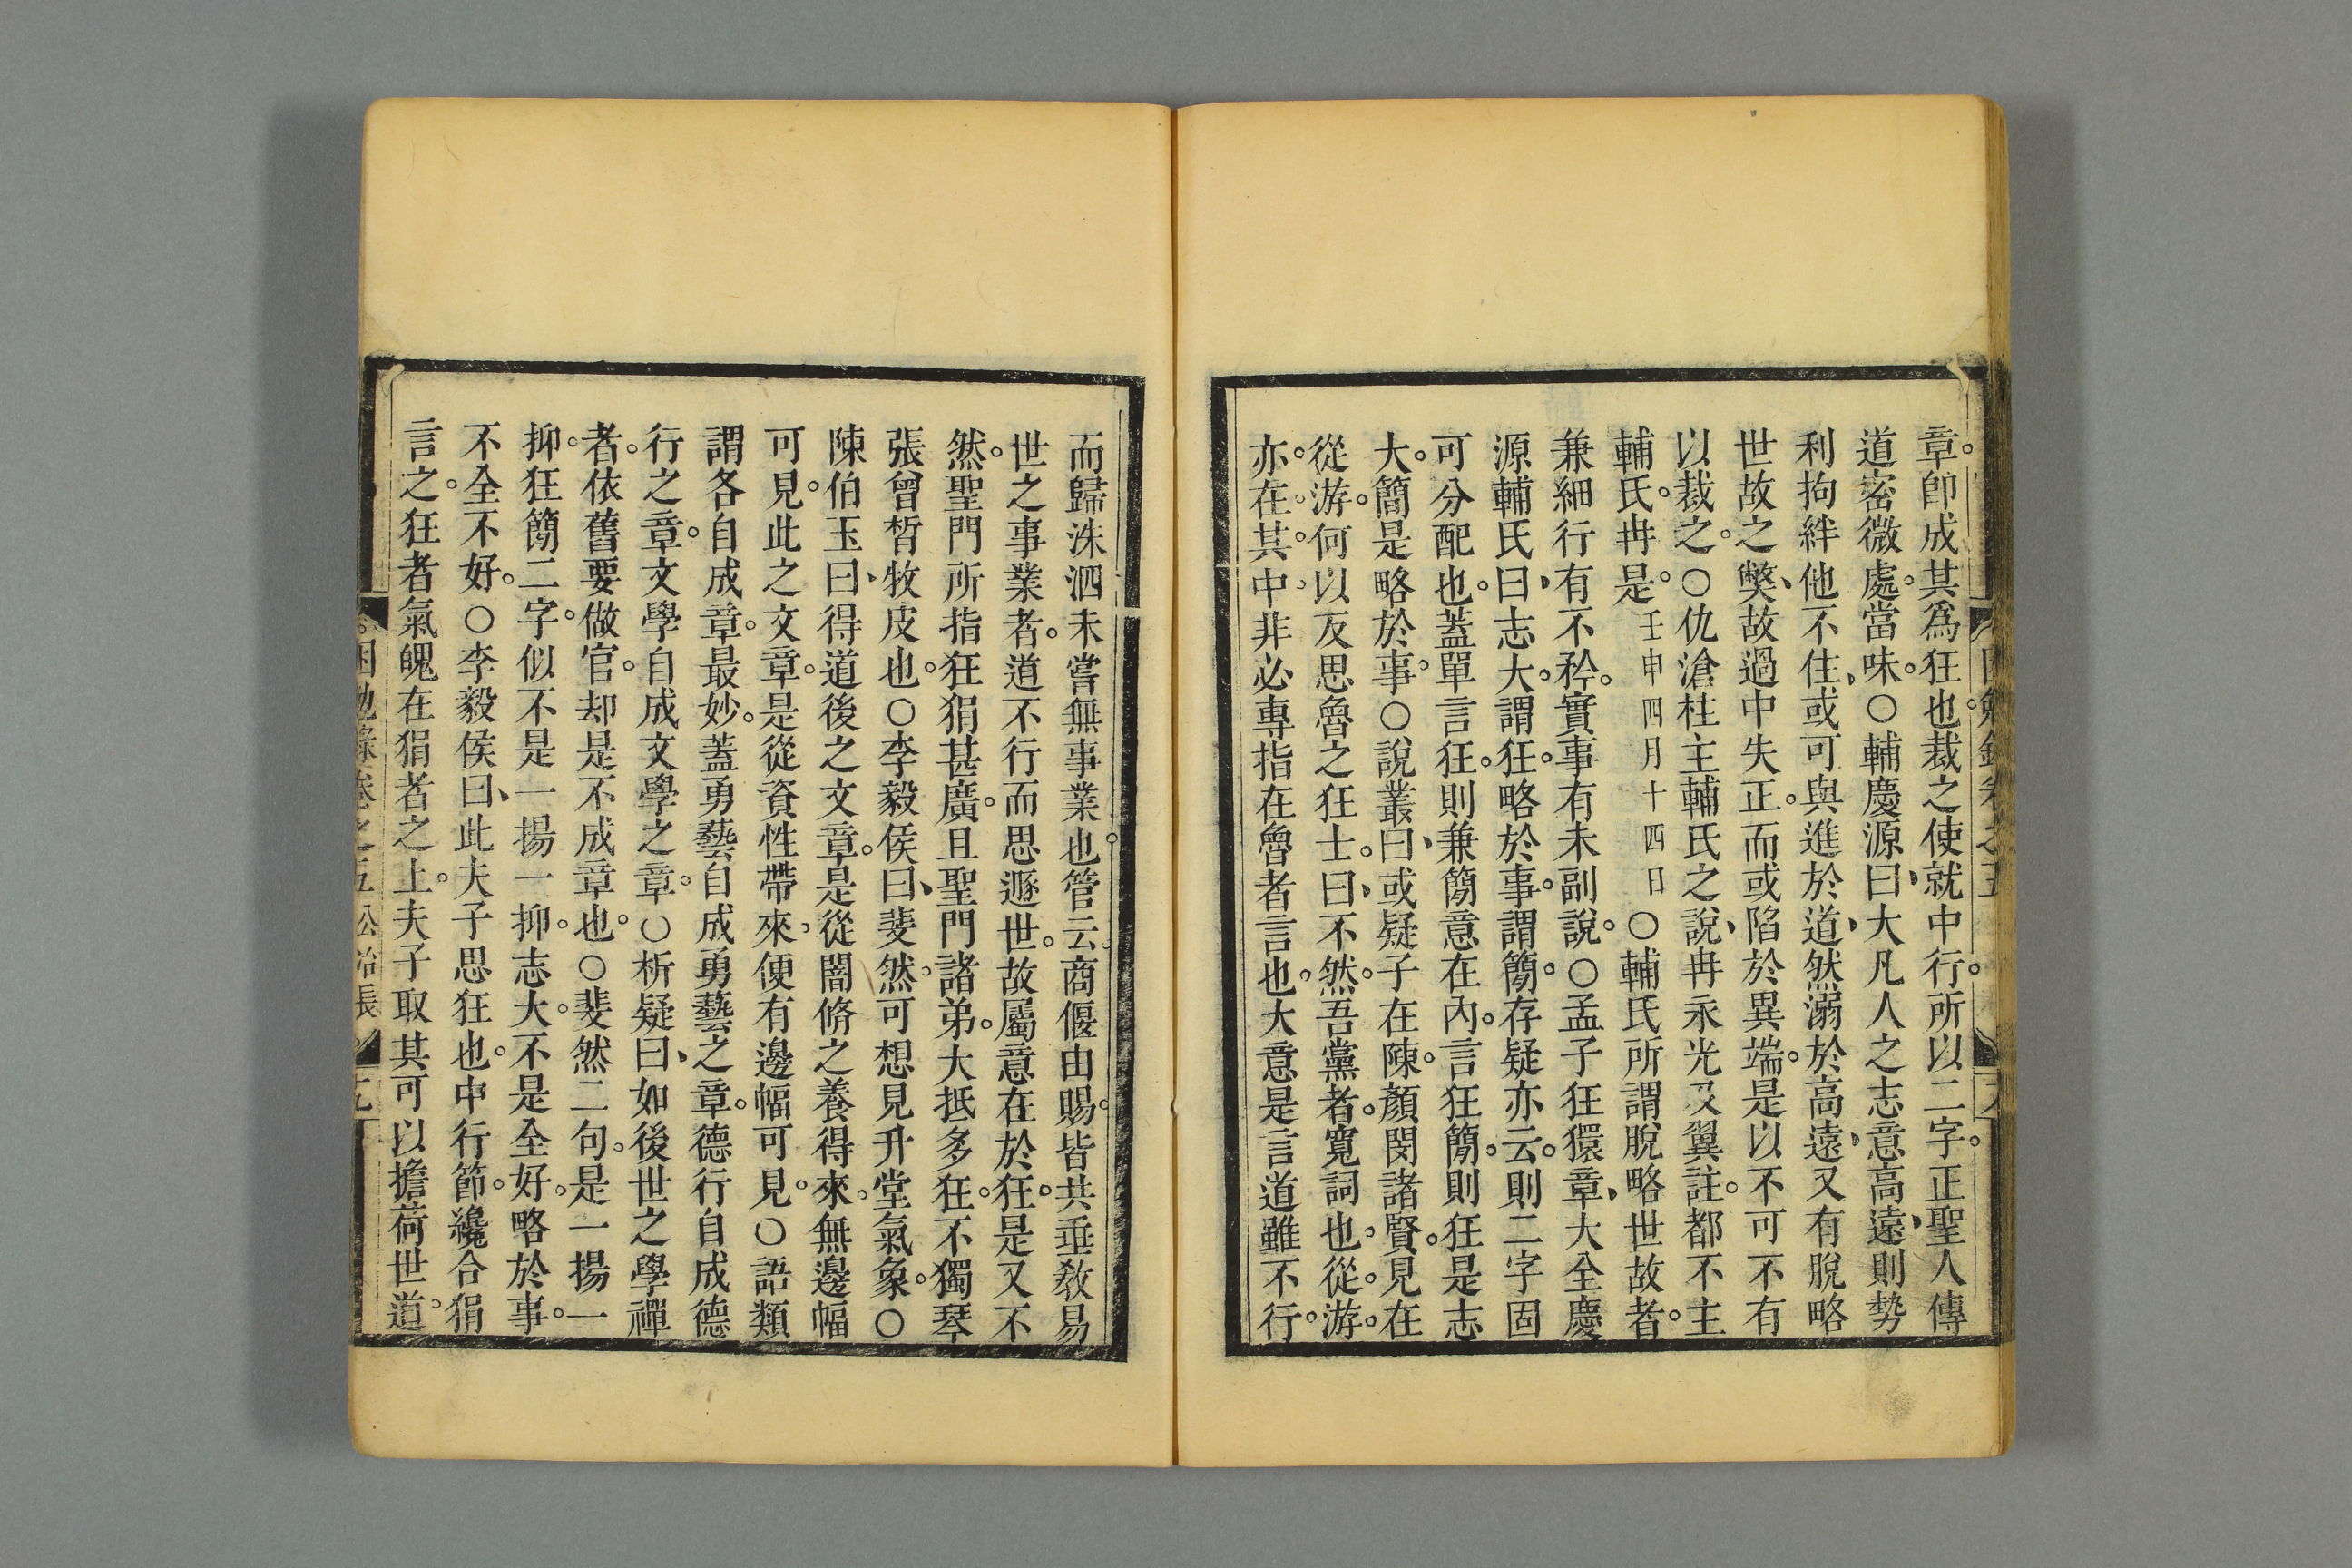 章。卽成其爲狂也。裁之使就中行。所以二字。正聖人傳
道密微處。當味。○輔慶源曰、大凡人之志意高遠、則勢
利拘絆他不住、或可與進於道、然溺於高遠、又有脫略
世故之獘、故過中失正。而或陷於異端。是以不可不有
以裁之。○仇滄柱主輔氏之說、冉永光及翼註。都不主
輔氏。冉是。壬申四月十四日○輔氏所謂脫略世故者。
兼細行有不矜。實事有未副說。○孟子狂獧章、大全慶
源輔氏曰、志大。謂狂。略於事。謂簡。存疑亦云。則二字固
可分配也。蓋單言狂。則兼簡意在內。言狂簡。則狂是志
大。簡是略於事。○說叢曰、或疑子在陳。顏閔諸賢。見在
從游。何以反思魯之狂士。曰、不然。吾黨者。寬詞也。從。游。
亦。在。其。中。非必專指在魯者言也。大意是言道雖不行。
而歸洙泗未嘗無事業也。管云商偃由賜。皆共垂敎易
世之事業者。道不行而思遯世。故屬意在於狂。是又不
然。聖門所指狂狷甚廣。且聖門諸弟。大抵多狂。不獨琴
張曾皙牧皮也。○李毅侯曰、斐然。可想見升堂氣象。○
陳伯玉曰、得道後之文章。是從闇脩之養得來。無邊幅
可見。此之文章。是從資性帶來。便有邊幅可見。○語類
謂各自成章。最妙。蓋勇藝自成勇藝之章。德行自成德
行之章。文學自成文學之章。○析疑曰、如後世之學禪
者。依舊要做官。却是不成章也。○斐然二句。是一揚一
抑。狂簡二字。似不是一揚一抑。志大。不是全好。略於事。
不全不好。○李毅侯曰、此夫子思狂也。中行節。纔合狷
言之。狂者氣魄在狷者之上。夫子取其可以擔荷世道。
困勉錄卷之五 公冶長